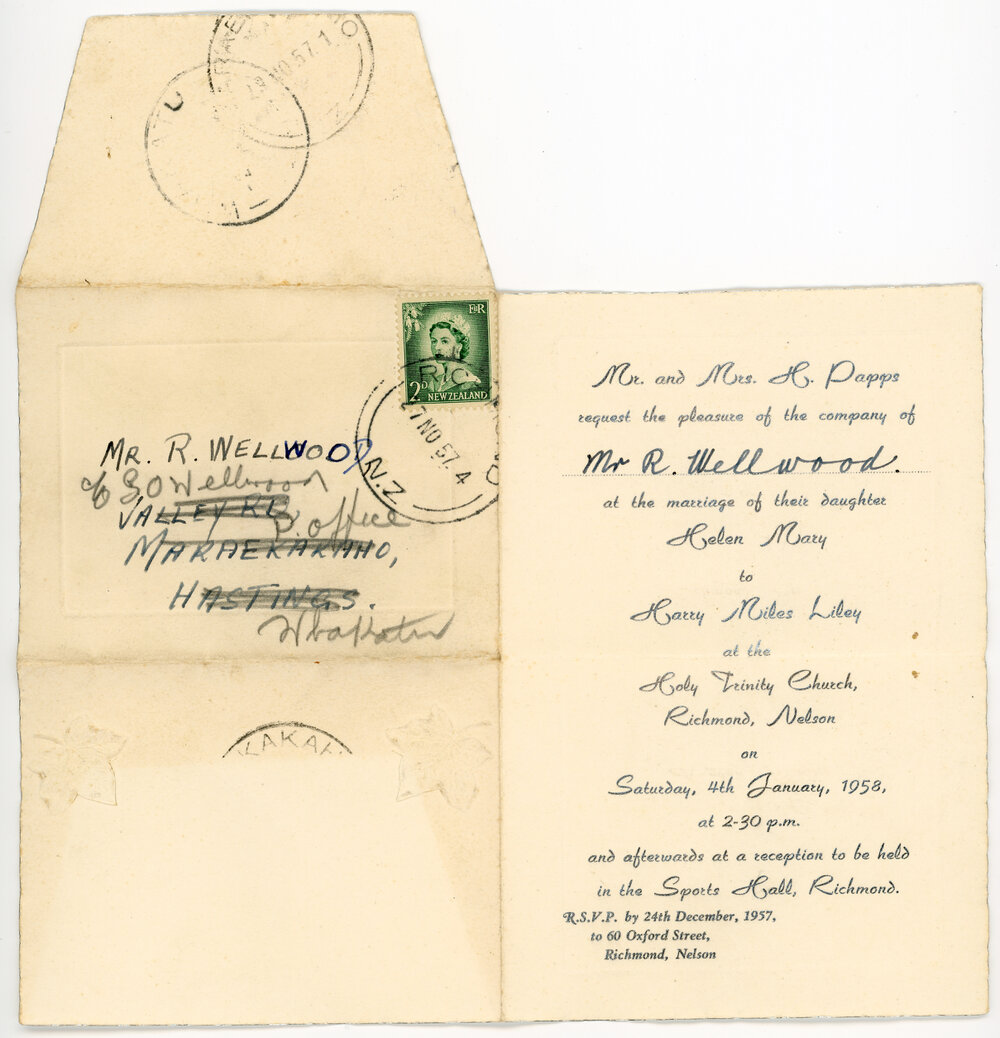 28 NO 57.1
O
Z
ATU
E II R
2D NEW ZEALAND
RIC
27 NO 57.4
N.Z
MR. R. WELLWOOD
c/o G O Wellwood
VALLEY RD
P. Office
MARAEKAKAHO,
HASTINGS.
Whakatu
KAKAH
Mr. and Mrs. H. Papps
request the pleasure of the company of
Mr R. Wellwood.
at the marriage of their daughter
Helen Mary
to
Harry Miles Liley
at the
Holy Trinity Church,
Richmond, Nelson
on
Saturday, 4th January, 1958,
at 2-30 p.m.
and afterwards at a reception to be held
in the Sports Hall, Richmond.
R.S.V.P. by 24th December, 1957,
to 60 Oxford Street,
Richmond, Nelson